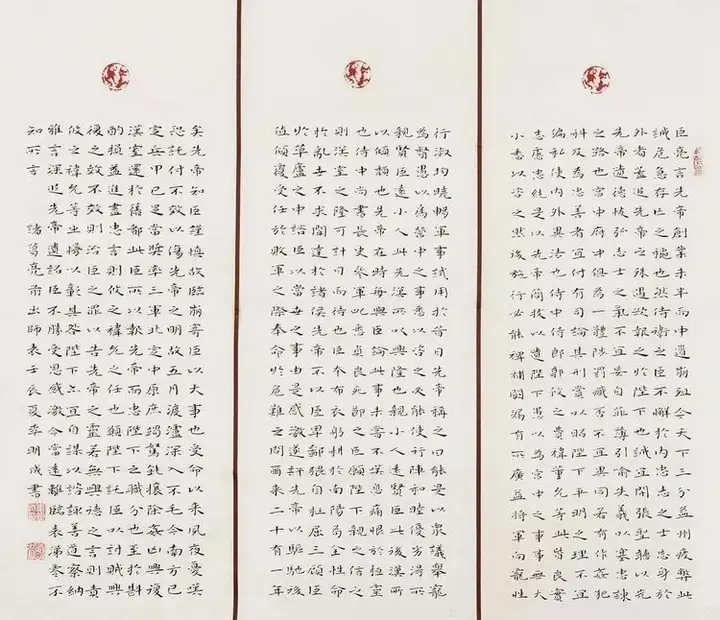 臣亮言先帝創業未半而中道崩殂今天下三分益州疲弊此
誠危急存亡之秋也然侍衛之臣不懈於內忠志之士忘身於
外者蓋追先帝之殊遇欲報之於陛下也誠宜開張聖聽以光
先帝遺德恢弘志士之氣不宜妄自菲薄引喻失義以塞忠諫
之路也宮中府中俱為一體陟罰臧否不宜異同若有作姦犯
科及為忠善者宜付有司論其刑賞以昭陛下平明之理不宜
偏私使內外異法也侍中侍郎郭攸之費禕董允等此皆良實
志慮忠純是以先帝簡拔以遺陛下愚以為宮中之事事無大
小悉以咨之然後施行必能裨補闕漏有所廣益將軍向寵性
行淑均曉暢軍事試用於昔日先帝稱之曰能是以眾議舉寵
為督愚以為營中之事悉以咨之必能使行陣和睦優劣得所
親賢臣遠小人此先漢所以興隆也親小人遠賢臣此後漢所
以傾頹也先帝在時每與臣論此事未嘗不嘆息痛恨於桓靈
也侍中尚書長史參軍此悉貞良死節之臣願陛下親之信之
則漢室之隆可計日而待也臣本布衣躬耕於南陽苟全性命
於亂世不求聞達於諸侯先帝不以臣卑鄙猥自枉屈三顧臣
於草廬之中諮臣以當世之事由是感激遂許先帝以驅馳後
值傾覆受任於敗軍之際奉命於危難之間爾來二十有一年
矣先帝知臣謹慎故臨崩寄臣以大事也受命以來夙夜憂嘆
恐託付不效以傷先帝之明故五月渡瀘深入不毛今南方已
定兵甲已足當獎率三軍北定中原庶竭駑鈍攘除姦凶興復
漢室還於舊都此臣所以報先帝而忠陛下之職分也至於斟
酌損益進盡忠言則攸之禕允之任也願陛下託臣以討賊興
復之效不效則治臣之罪以告先帝之靈若無興德之言則責
攸之禕允等之慢以彰其咎陛下亦宜自謀以諮諏善道察納
雅言深追先帝遺詔臣不勝受恩感激今當遠離臨表涕零不
知所言 諸葛亮前出師表壬辰夏李明成書